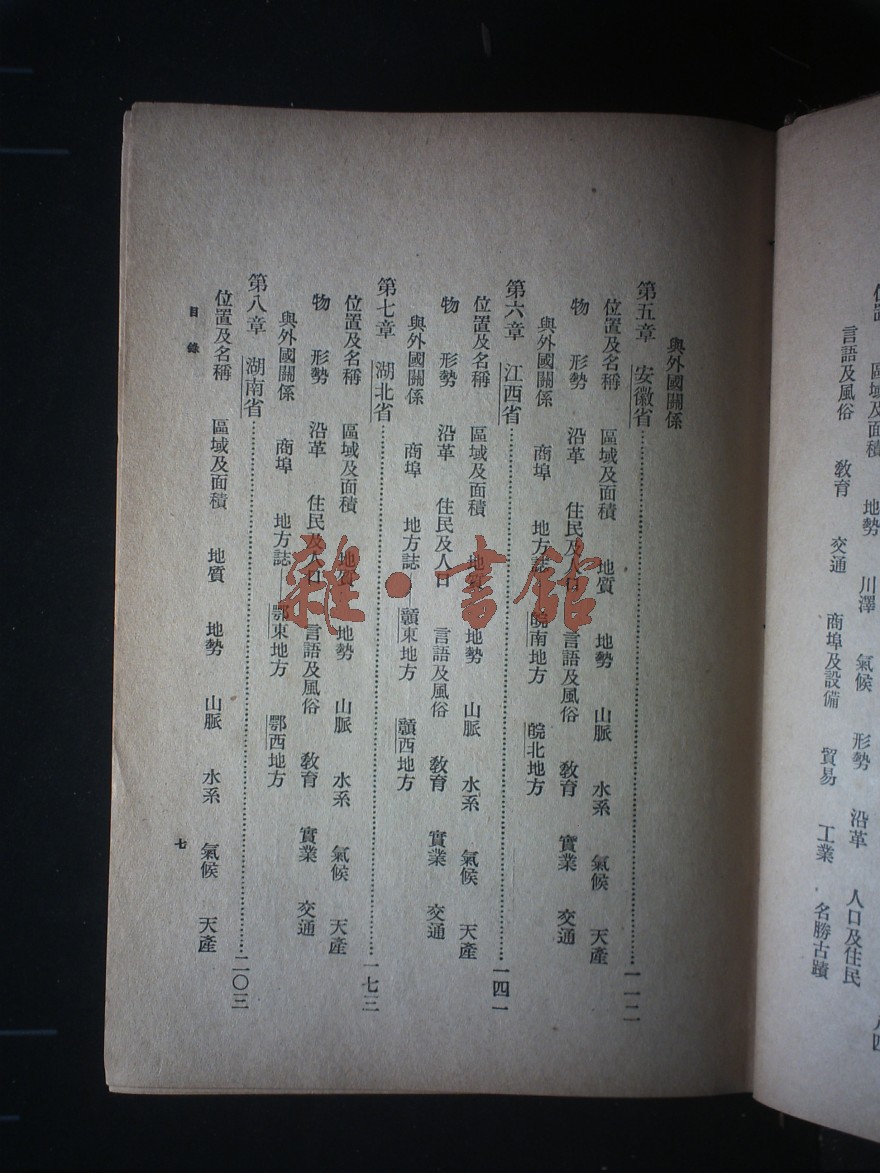 區域及面積　地勢　川澤　氣候　形勢　沿革　人口及住民
言語及風俗　教育　交通　商埠及設備　貿易　工業　名勝古蹟
與外國關係
第五章　安徽省……一一二
位置及名稱　區域及面積　地質　地勢　山脈　水系　氣候　天產
物　形勢　沿革　住民及人口　言語及風俗　教育　實業　交通
與外國關係　商埠　地方誌　皖南地方　皖北地方
第六章　江西省……一四一
位置及名稱　區域及面積　地質　地勢　山脈　水系　氣候　天產
物　形勢　沿革　住民及人口　言語及風俗　教育　實業　交通
與外國關係　商埠　地方誌　贛東地方　贛西地方
第七章　湖北省……一七三
位置及名稱　區域及面積　地質　地勢　山脈　水系　氣候　天產
物　形勢　沿革　住民及人口　言語及風俗　教育　實業　交通
與外國關係　商埠　地方誌　鄂東地方　鄂西地方
第八章　湖南省……二〇三
位置及名稱　區域及面積　地質　地勢　山脈　水系　氣候　天產
目錄
七
雜·書館